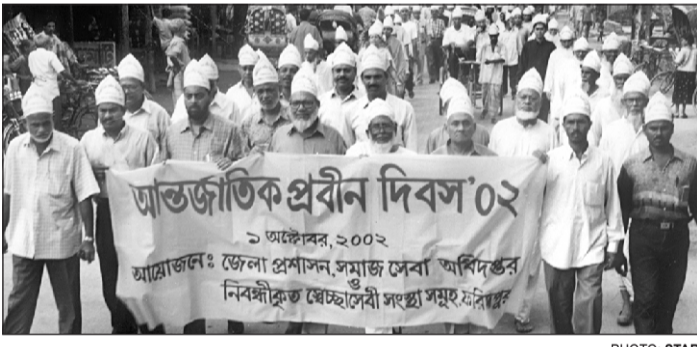 আন্তর্জাতিক প্রবীন দিবস'০২
১ অক্টোবর, ২০০২
আয়োজনে: জেলা প্রশাসন, সমাজ সেবা অধিদপ্তর
ও
নিবন্ধীকৃত স্বেচ্ছাসেবী সংস্থা সমূহ, ফরিদপুর
PHOTO: STAR